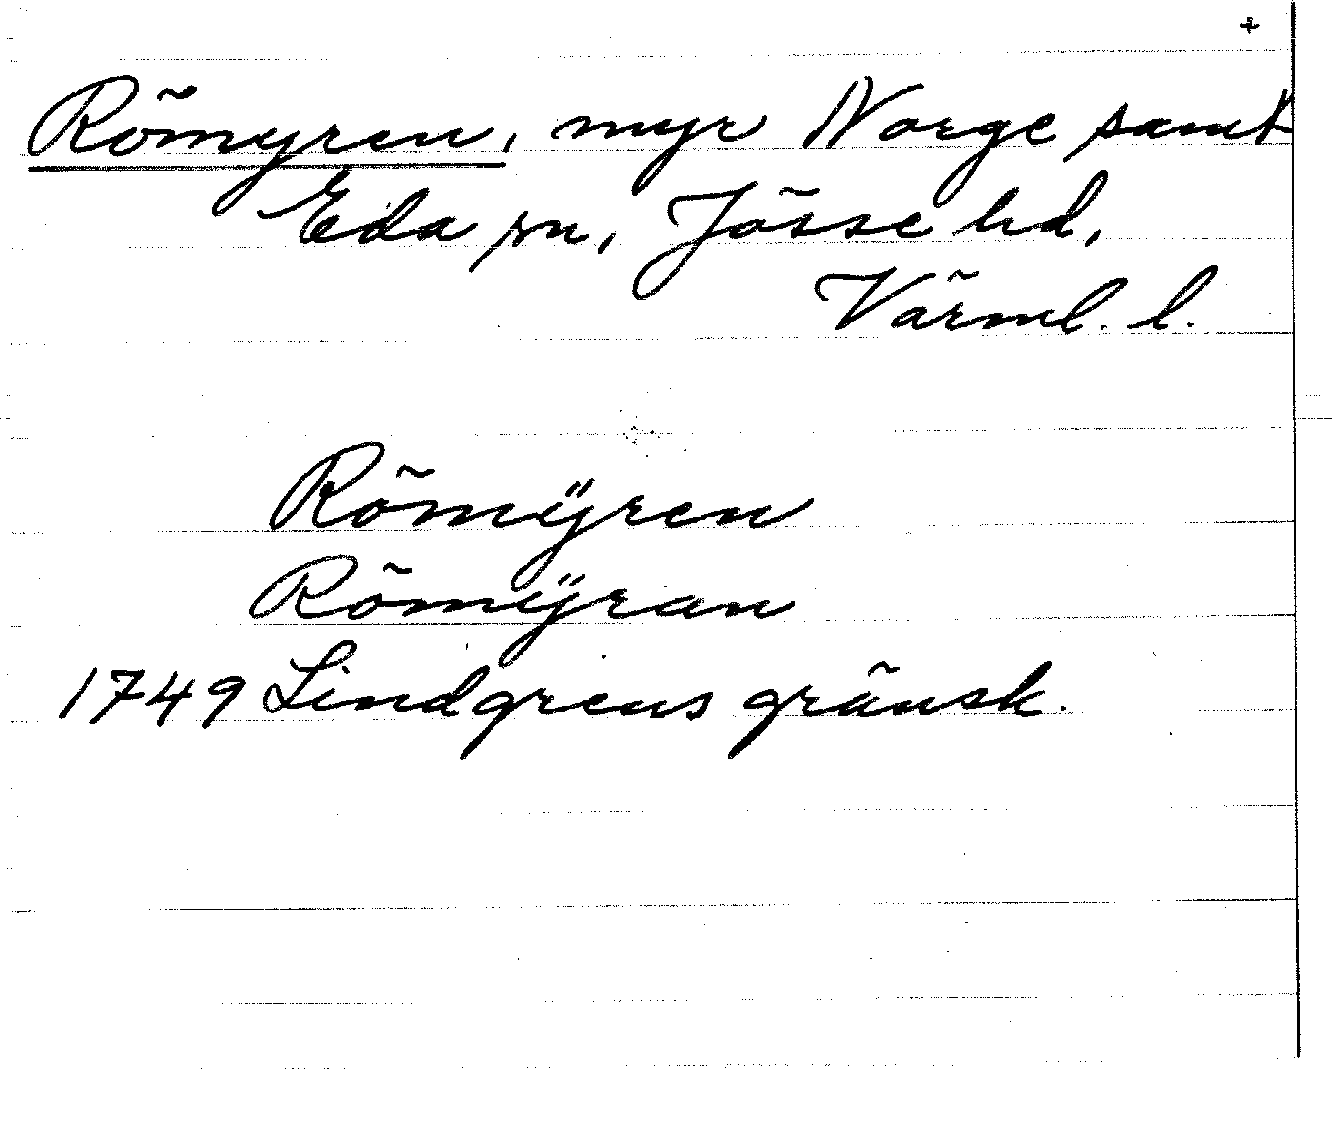 +
Römyren, myr Norge samt
Eda sn, Jösse hd,
Värml. l.
Römÿren
Römÿran
1749 Lindgrens gränsk.